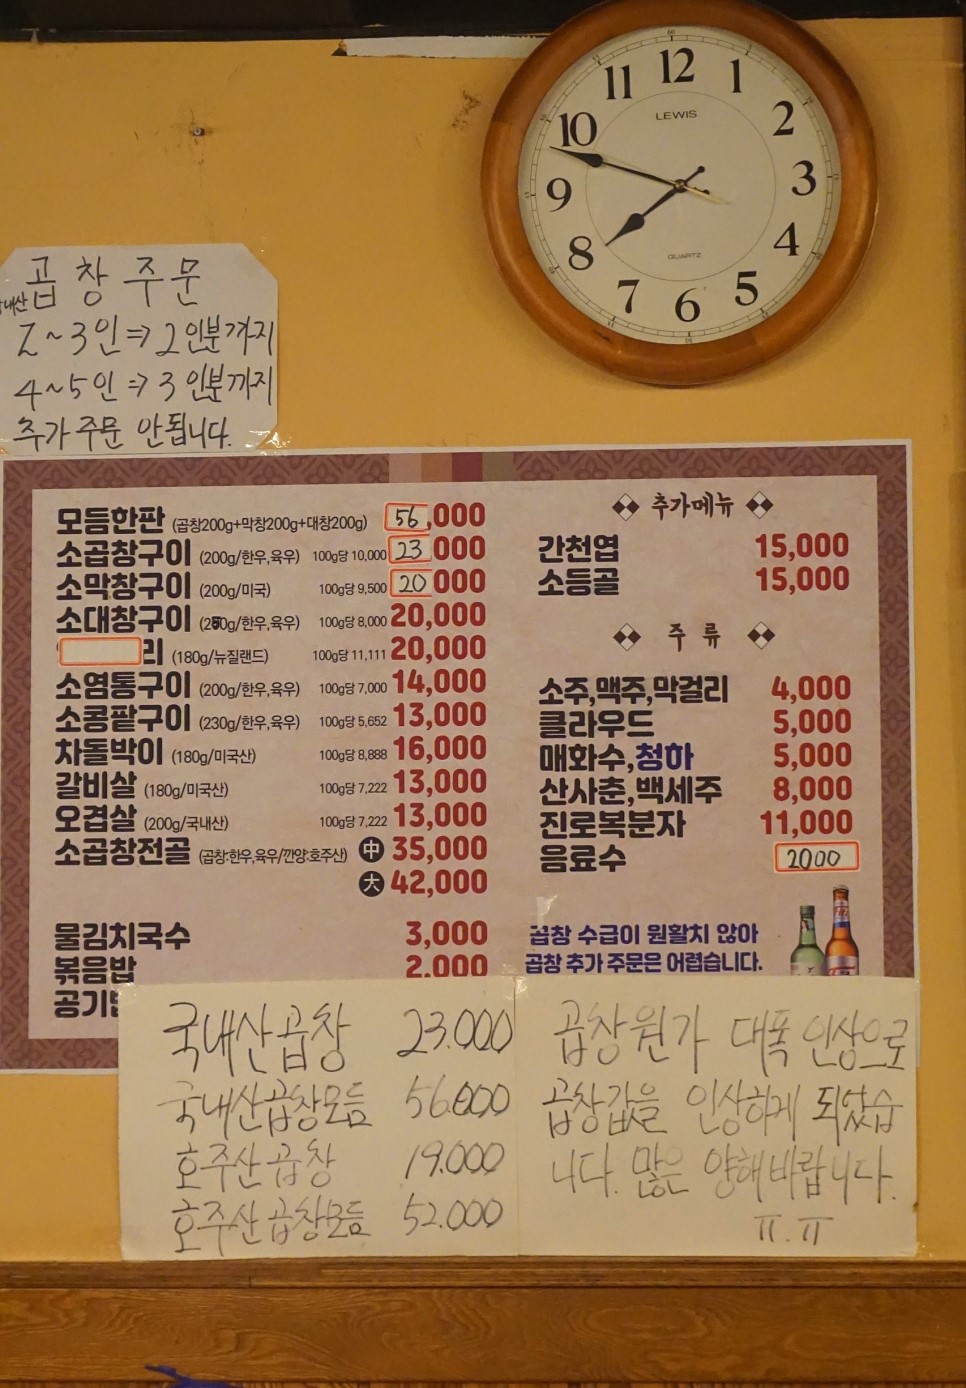 12
11
1
10
2
LEWIS
9
3
8
4
QUARTZ
7
5
6
곱창 주문
2~3인⇒2인분까지
4~5인⇒3인분까지
추가주문 안됩니다.
모듬한판 (곱창200g+막창200g+대창200g) 56,000
소곱창구이 (200g/한우,육우) 100g당 10,000 23 000
소막창구이 (200g/미국) 100g당 9,500 20 000
소대창구이 (250g/한우,육우) 100g당 8,000 20,000
리 (180g/뉴질랜드) 100g당 11,111 20,000
소염통구이 (200g/한우,육우) 100g당 7,000 14,000
소콩팥구이 (230g/한우,육우) 100g당 5,652 13,000
차돌박이 (180g/미국산) 100g당 8,888 16,000
갈비살 (180g/미국산) 100g당 7,222 13,000
오겹살 (200g/국내산) 100g당 7,222 13,000
소곱창전골 (곱창:한우,육우/깐양:호주산) 中 35,000
大 42,000
물김치국수 3,000
볶음밥 2,000
공기
추가메뉴
간천엽 15,000
소등골 15,000
주 류
소주,맥주,막걸리 4,000
클라우드 5,000
매화수,청하 5,000
산사춘,백세주 8,000
진로복분자 11,000
음료수 2000
곱창 수급이 원활치 않아
곱창 추가 주문은 어렵습니다.
국내산곱창 23.000
국내산곱창모듬 56.000
호주산곱창 19.000
호주산곱창모듬 52.000
곱창원가 대폭 인상으로
곱창값을 인상하게 되었습
니다. 많은 양해바랍니다.
ㅠ.ㅠ